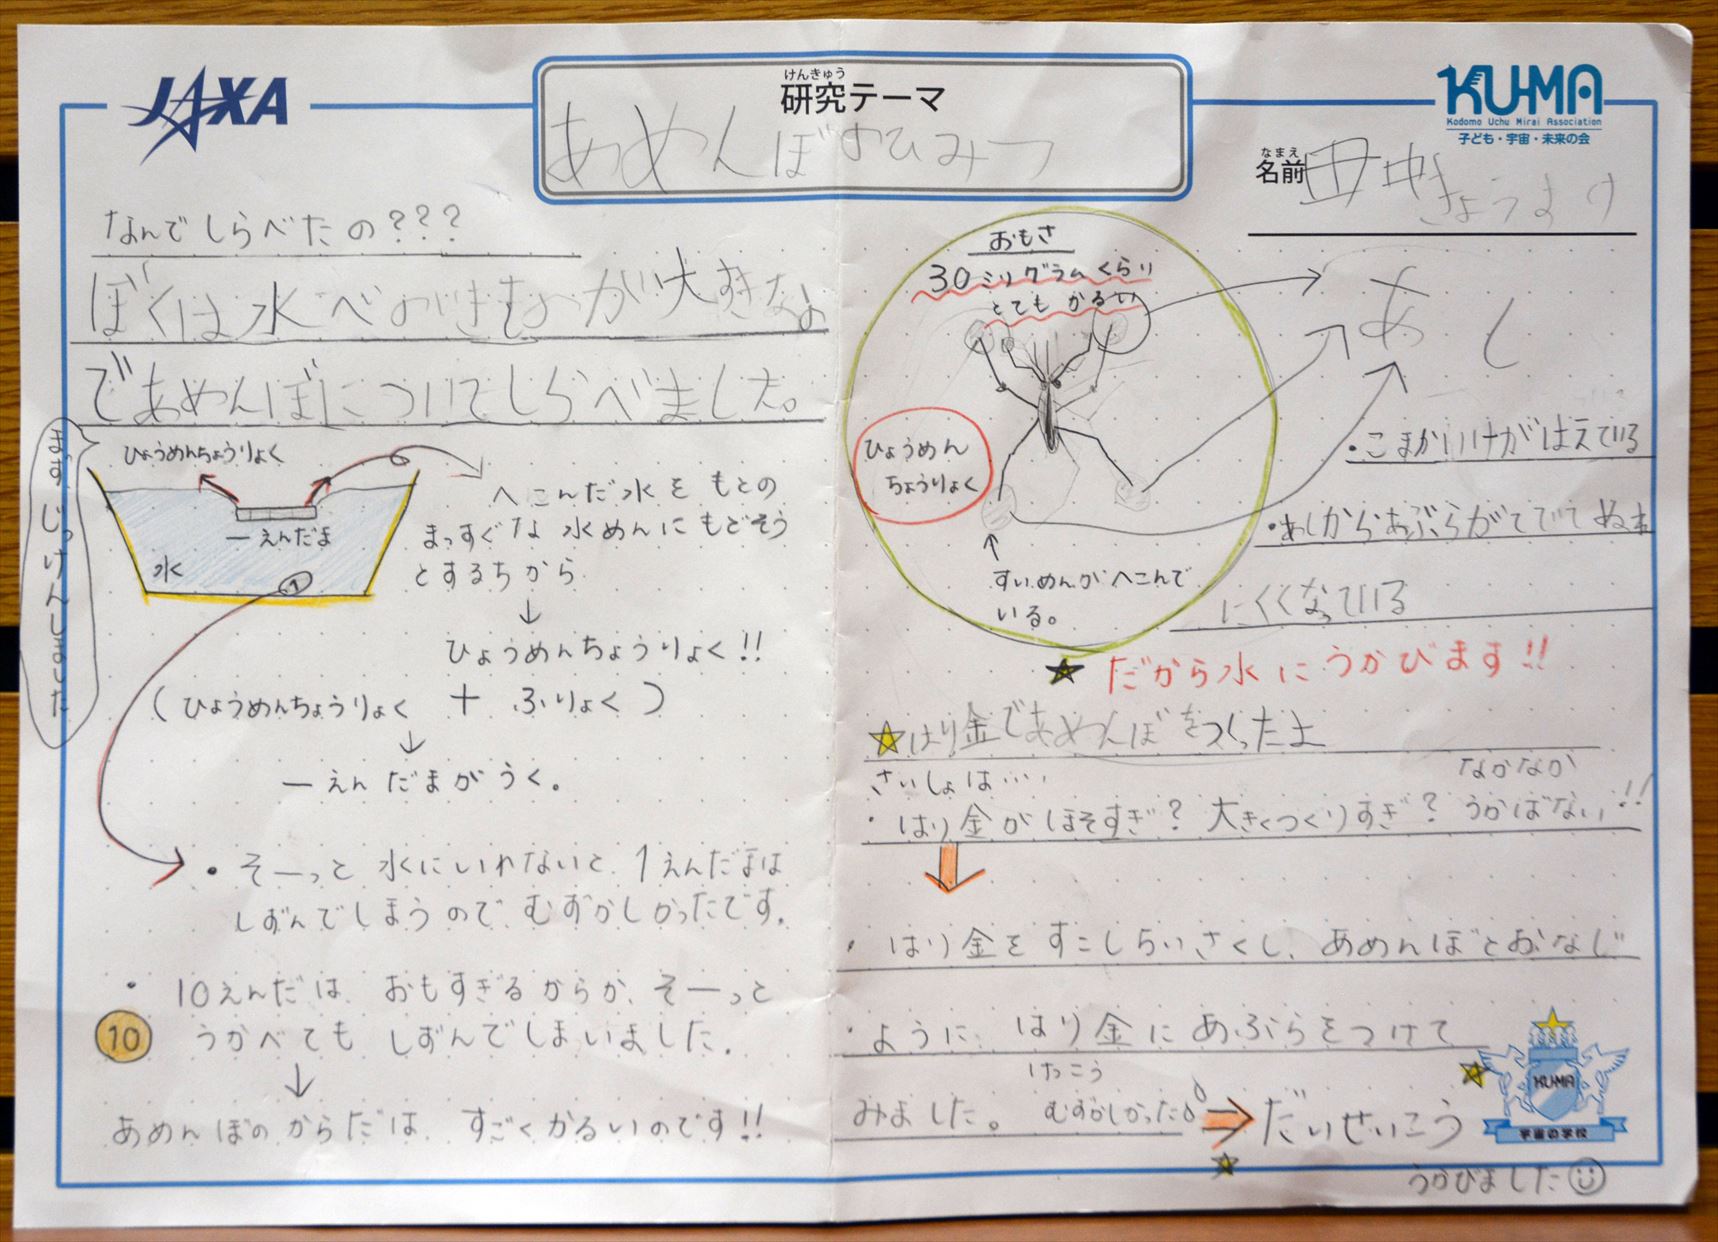 JAXA
けんきゅう
研究テーマ
あめんぼのひみつ
KU-MA
Kodomo Uchu Mirai Association
子ども・宇宙・未来の会
なまえ
名前
なんでしらべたの???
ぼくは水べのいきものが大すきなの
であめんぼについてしらべました。
まずじっけんしました
ひょうめんちょうりょく
一えんだま
水
1
へこんだ水をもとの
まっすぐな水めんにもどそう
とするちから
↓
ひょうめんちょうりょく!!
(ひょうめんちょうりょく + ふりょく)
↓
一えんだまがうく。
・そーっと水にいれないと1えんだまは
しずんでしまうのでむずかしかったです。
・10えんだは、おもすぎるからか、そーっと
10
うかべてもしずんでしまいました。
↓
あめんぼのからだは、すごくかるいのです!!
おもさ
30ミリグラムくらい
とてもかるい
ひょうめん
ちょうりょく
↑
すいめんがへこんで
いる。
あし
・こまかいけがはえている
・あしからあぶらがでて
にくくなっている
★だから水にうかびます!!
☆はり金であめんぼをつくったよ
さいしょは・・・・
なかなか
・はり金がほそすぎ?大きくつくりすぎ?うかばない!!
・はり金をすこしちいさくし、あめんぼとおなじ
・ように、はり金にあぶらをつけて
けっこう
みました。むずかしかった ⇒ だいせいこう
うかびました
KU-MA
宇宙の学校